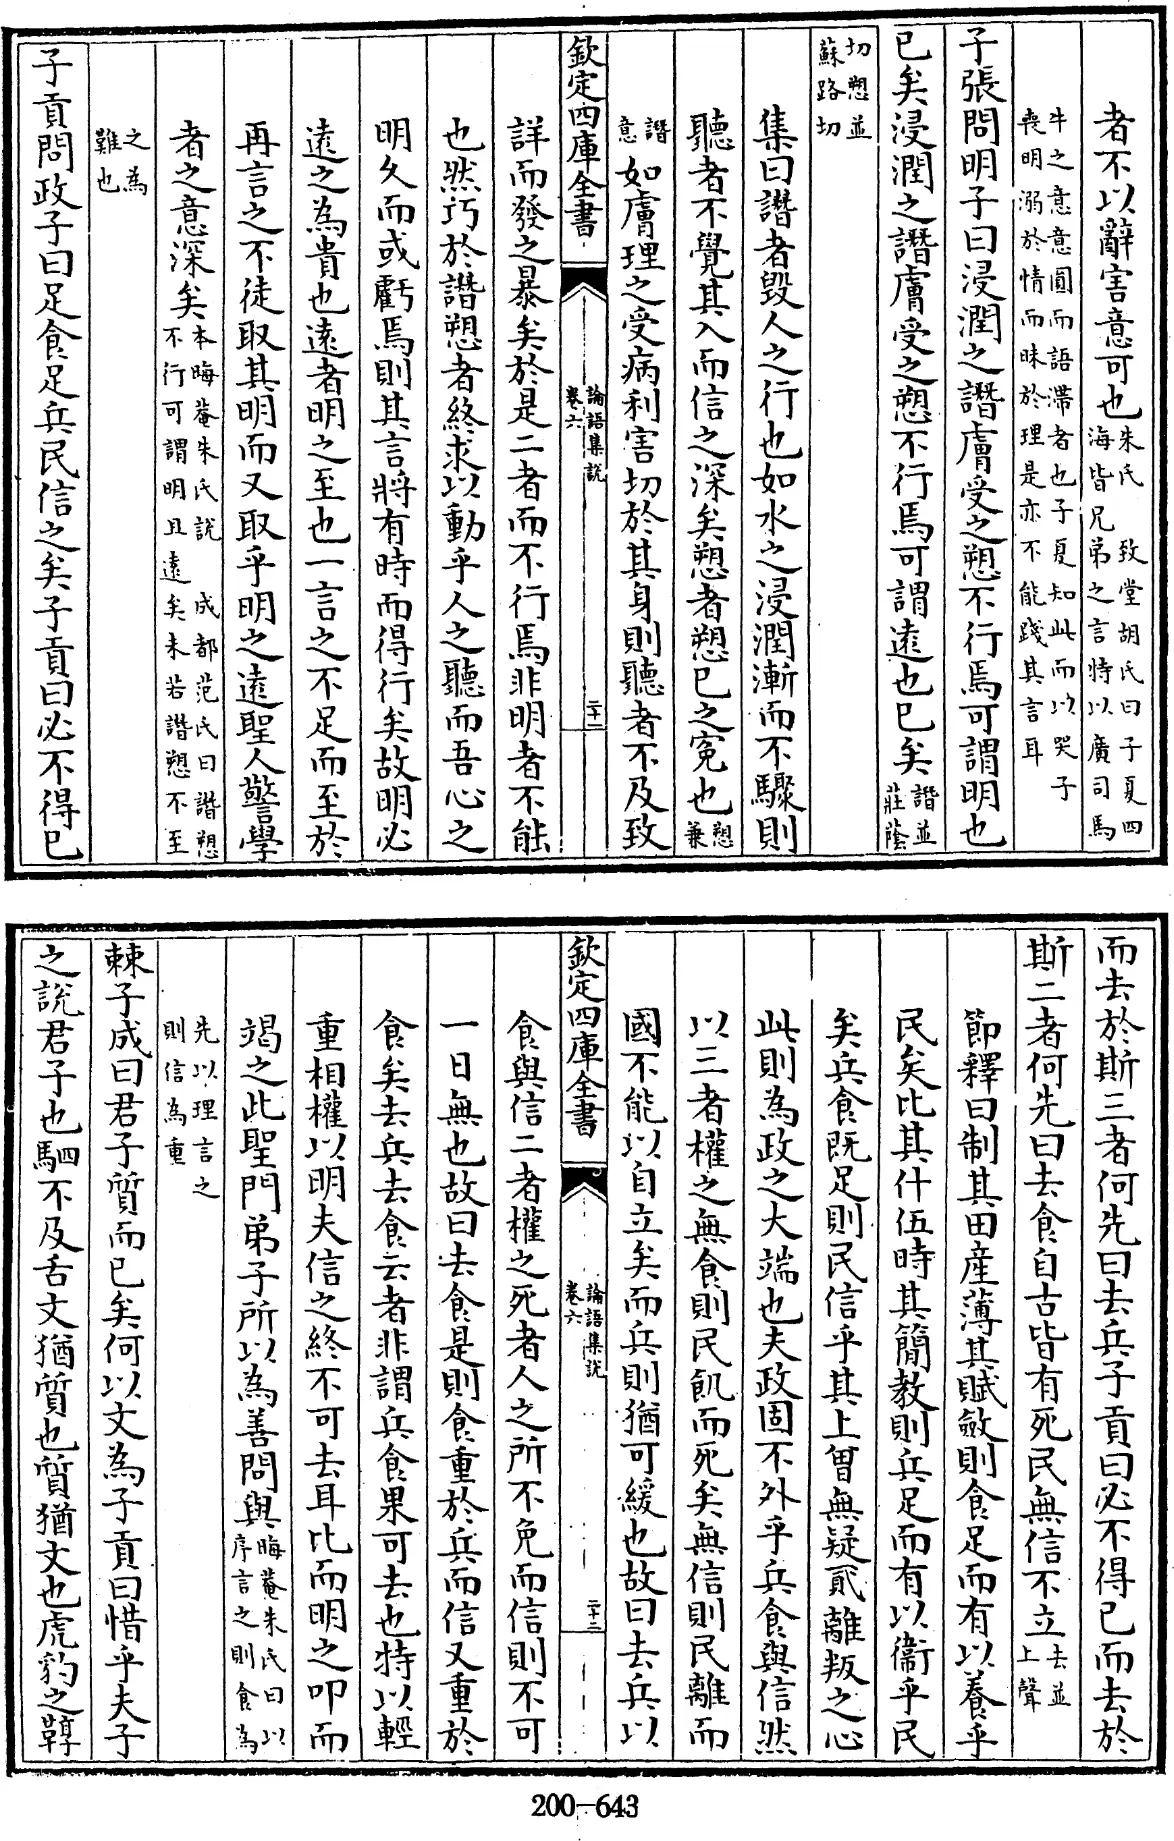 者不以辭害意可也朱氏　致堂胡氏曰子夏四
海皆兄弟之言特以廣司馬
牛之意意圓而語滯者也子夏知此而以哭子
喪明溺於情而昧於理是亦不能踐其言耳
子張問明子曰浸潤之譖膚受之愬不行焉可謂明也
已矣浸潤之譖膚受之愬不行焉可謂遠也已矣譖並
莊蔭
切愬並
蘇路切
集曰譖者毀人之行也如水之浸潤漸而不驟則
聽者不覺其入而信之深矣愬者愬己之寃也愬
兼
譖
意如膚理之受病利害切於其身則聽者不及致
欽定四庫全書
論語集說
卷六
二十二
詳而發之暴矣於是二者而不行焉非明者不能
也然巧於譖愬者終求以動乎人之聽而吾心之
明久而或虧焉則其言將有時而得行矣故明必
遠之為貴也遠者明之至也一言之不足而至於
再言之不徒取其明而又取乎明之遠聖人警學
者之意深矣本晦菴朱氏說　成都范氏曰譖愬
不行可謂明且遠矣未若譖愬不至
之為
難也
子貢問政子曰足食足兵民信之矣子貢曰必不得已
而去於斯三者何先曰去兵子貢曰必不得已而去於
斯二者何先曰去食自古皆有死民無信不立去並
上聲
節釋曰制其田產薄其賦斂則食足而有以養乎
民矣比其什伍時其簡教則兵足而有以衞乎民
矣兵食既足則民信乎其上曾無疑貳離叛之心
此則為政之大端也夫政固不外乎兵食與信然
以三者權之無食則民飢而死矣無信則民離而
國不能以自立矣而兵則猶可緩也故曰去兵以
欽定四庫全書
論語集說
卷六
二十三
食與信二者權之死者人之所不免而信則不可
一日無也故曰去食是則食重於兵而信又重於
食矣去兵去食云者非謂兵食果可去也特以輕
重相權以明夫信之終不可去耳比而明之叩而
竭之此聖門弟子所以為善問與晦菴朱氏曰以
序言之則食為
先以理言之
則信為重
棘子成曰君子質而已矣何以文為子貢曰惜乎夫子
之說君子也駟不及舌文猶質也質猶文也虎豹之鞟
200-643